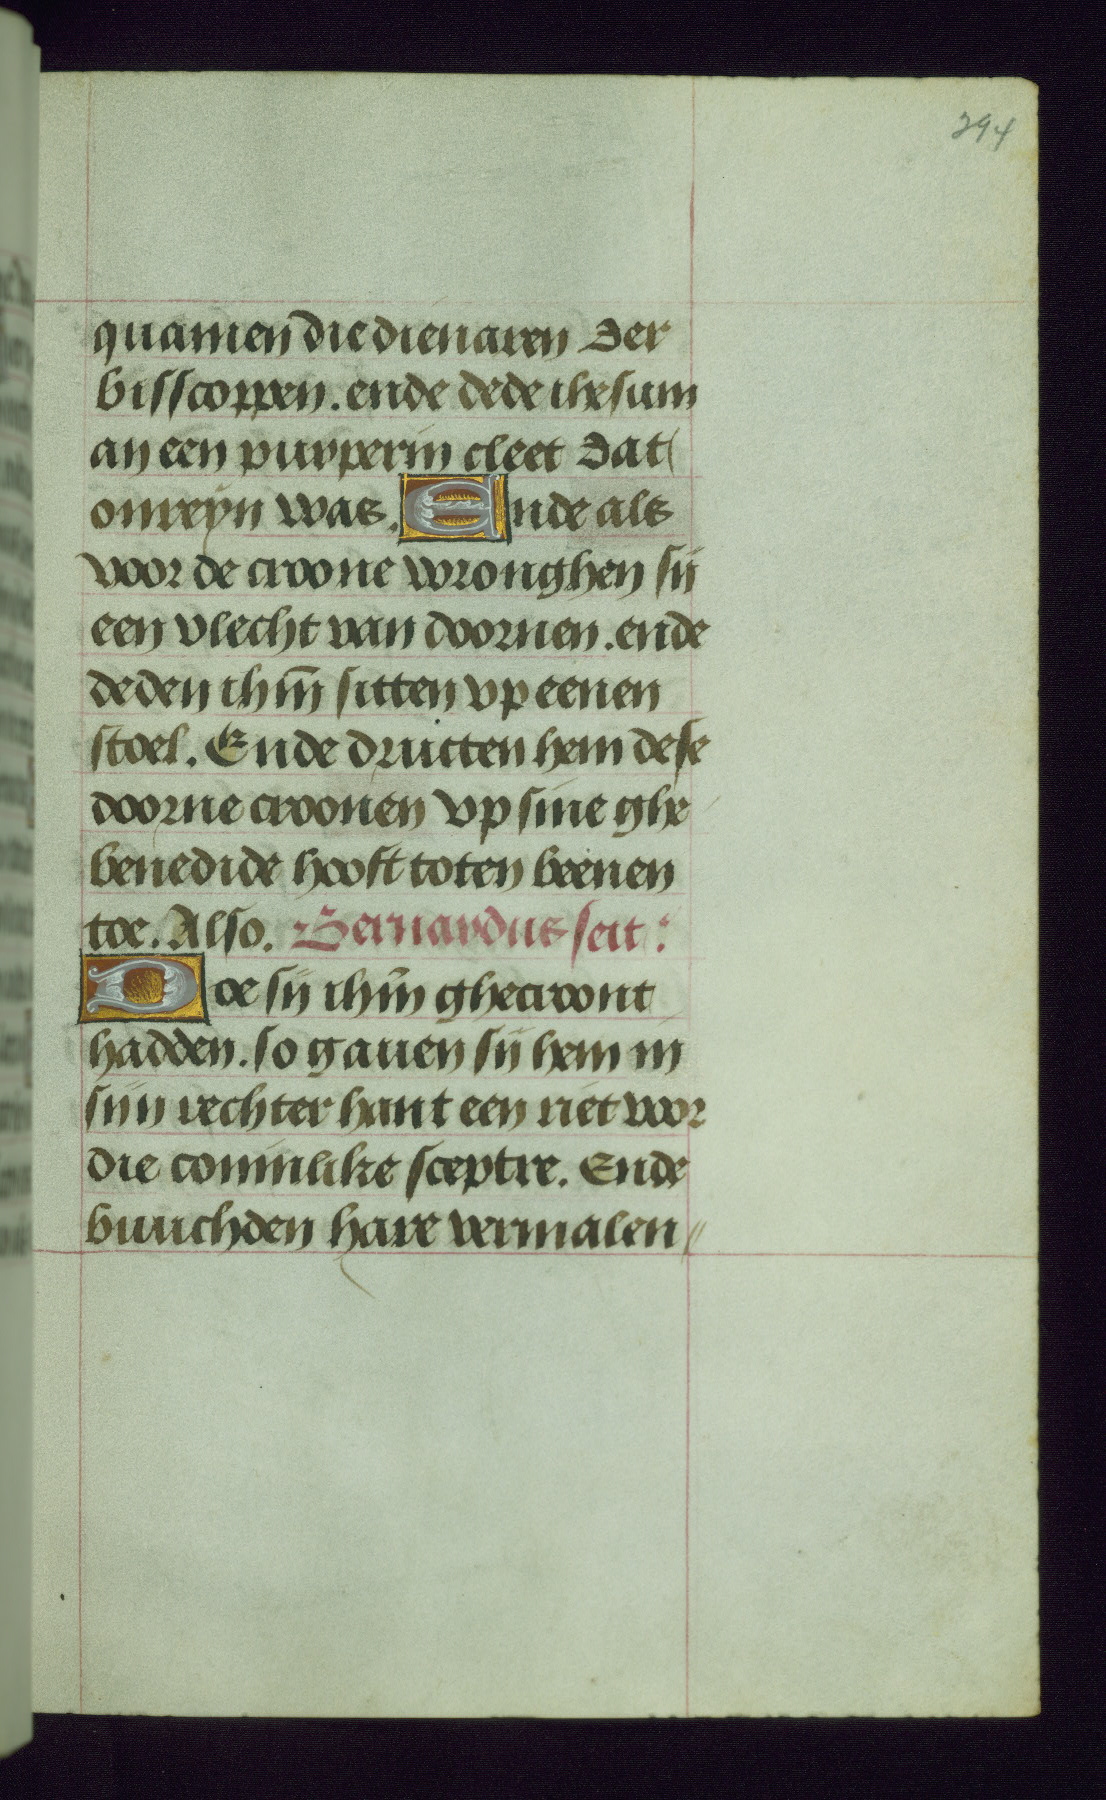 294
quamen die dienaren der
bisscoppen. ende dede ihesum
an een purperin cleet dat
onreyn was. Ende als
voor de croone wronghen sij
een vlecht van doornen. ende
deden ihm̄ sitten vp eenen
stoel. Ende druicten hem dese
doorne croonen vp sine ghe
benedide hooft toten beenen
toe. Also. Bernardus seit:
Doe sij ihm̄ ghecroont
hadden. so gauen sij hem in
sijn rechter hant een riet voor
die coninlike sceptre. Ende
buuchden hare vermalen//